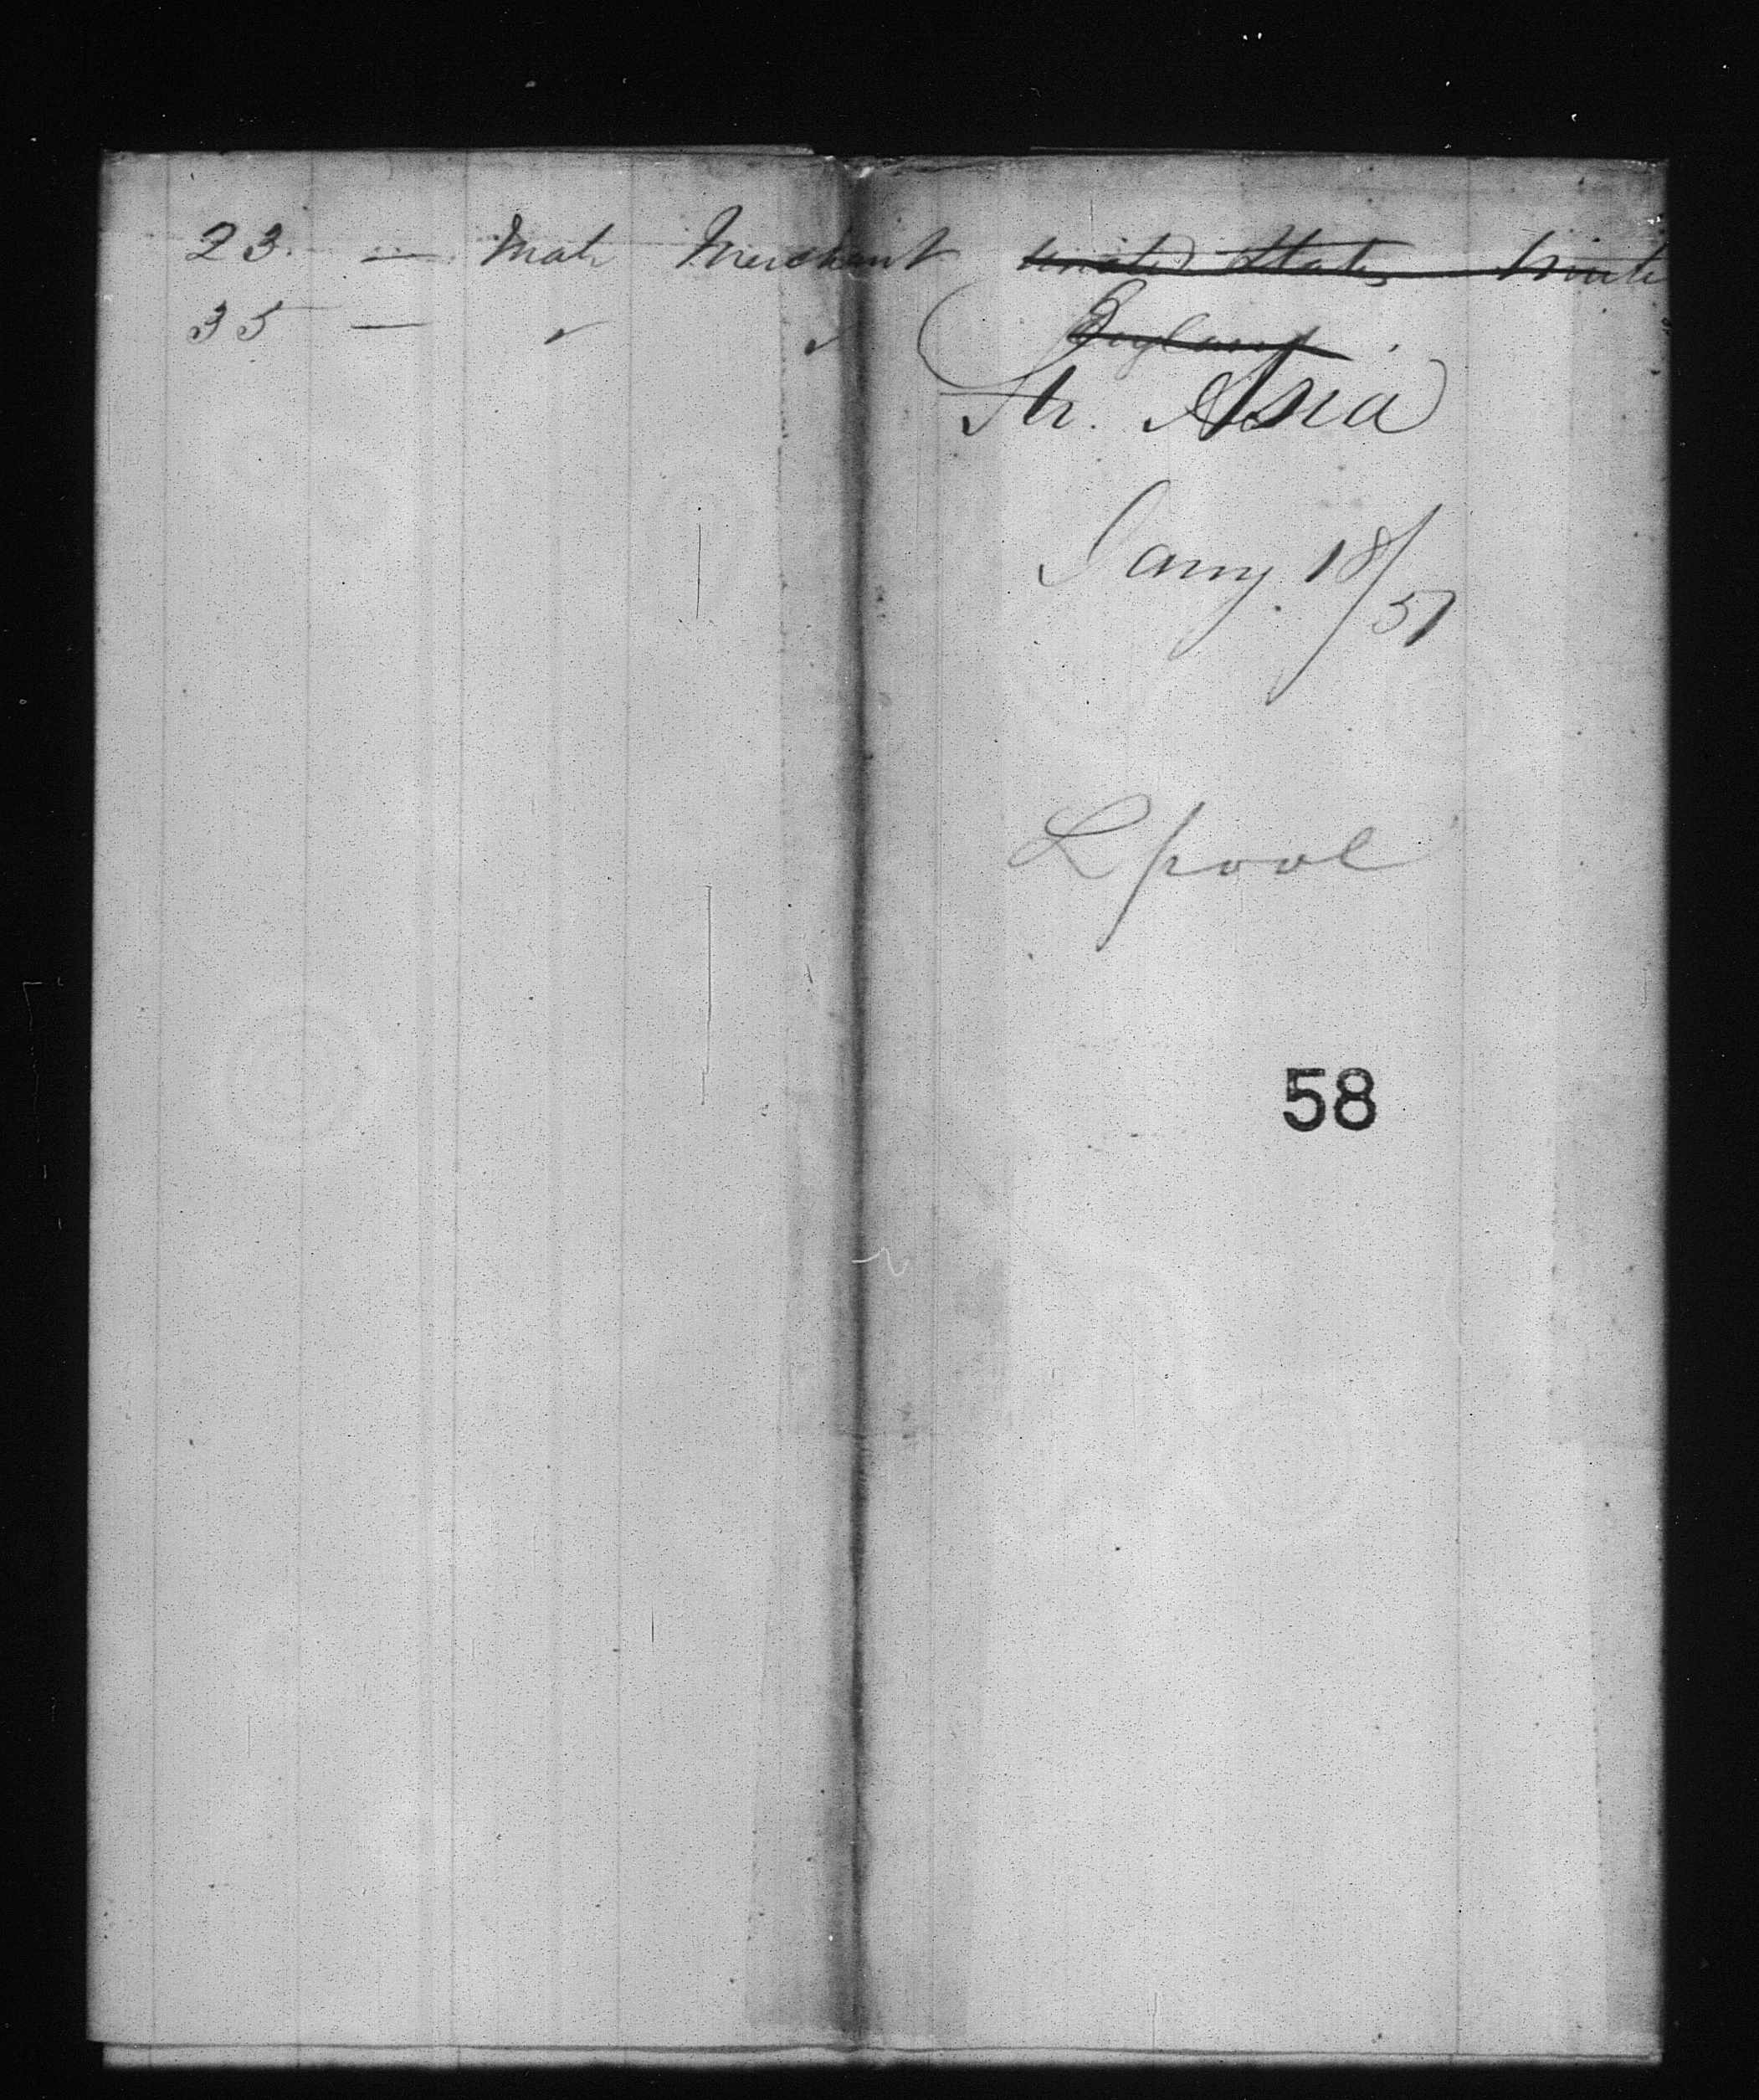 23. — Male Merchant United States Unite
35 — ✓ ✓ England
Str. Asia
Jany. 18/51
Lpool
58